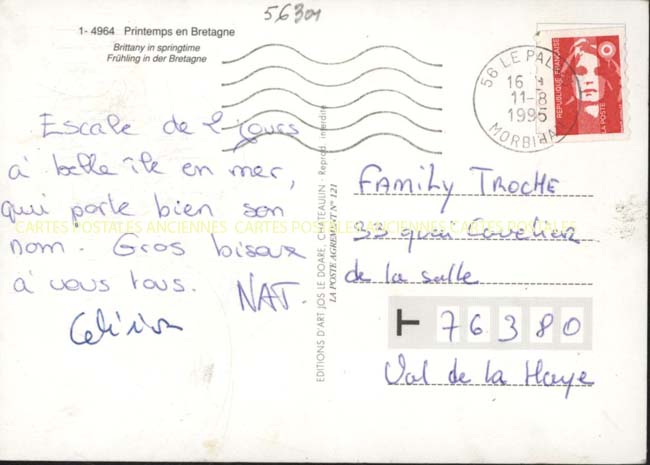 56301
1- 4964 Printemps en Bretagne
Brittany in springtime
Frühling in der Bretagne
56 LE PALAIS
16 H
11-8
1995
MORBIHAN
REPUBLIQUE FRANÇAISE
LA POSTE
Escale de 2 jours
à belle île en mer,
qui porte bien son
nom. Gros bisoux
à vous tous. NAT.
EDITIONS D'ART JOS LE DOARE, CHATEAULIN - Reprod. interdite
LA POSTE AGREMENT N° 121
FAMILY TROCHE
33 quai Cavelier
de la salle
76380
Val de la Haye
CARTES POSTALES ANCIENNES CARTES POSTALES ANCIENNES CARTES POSTALES ANCIENNES